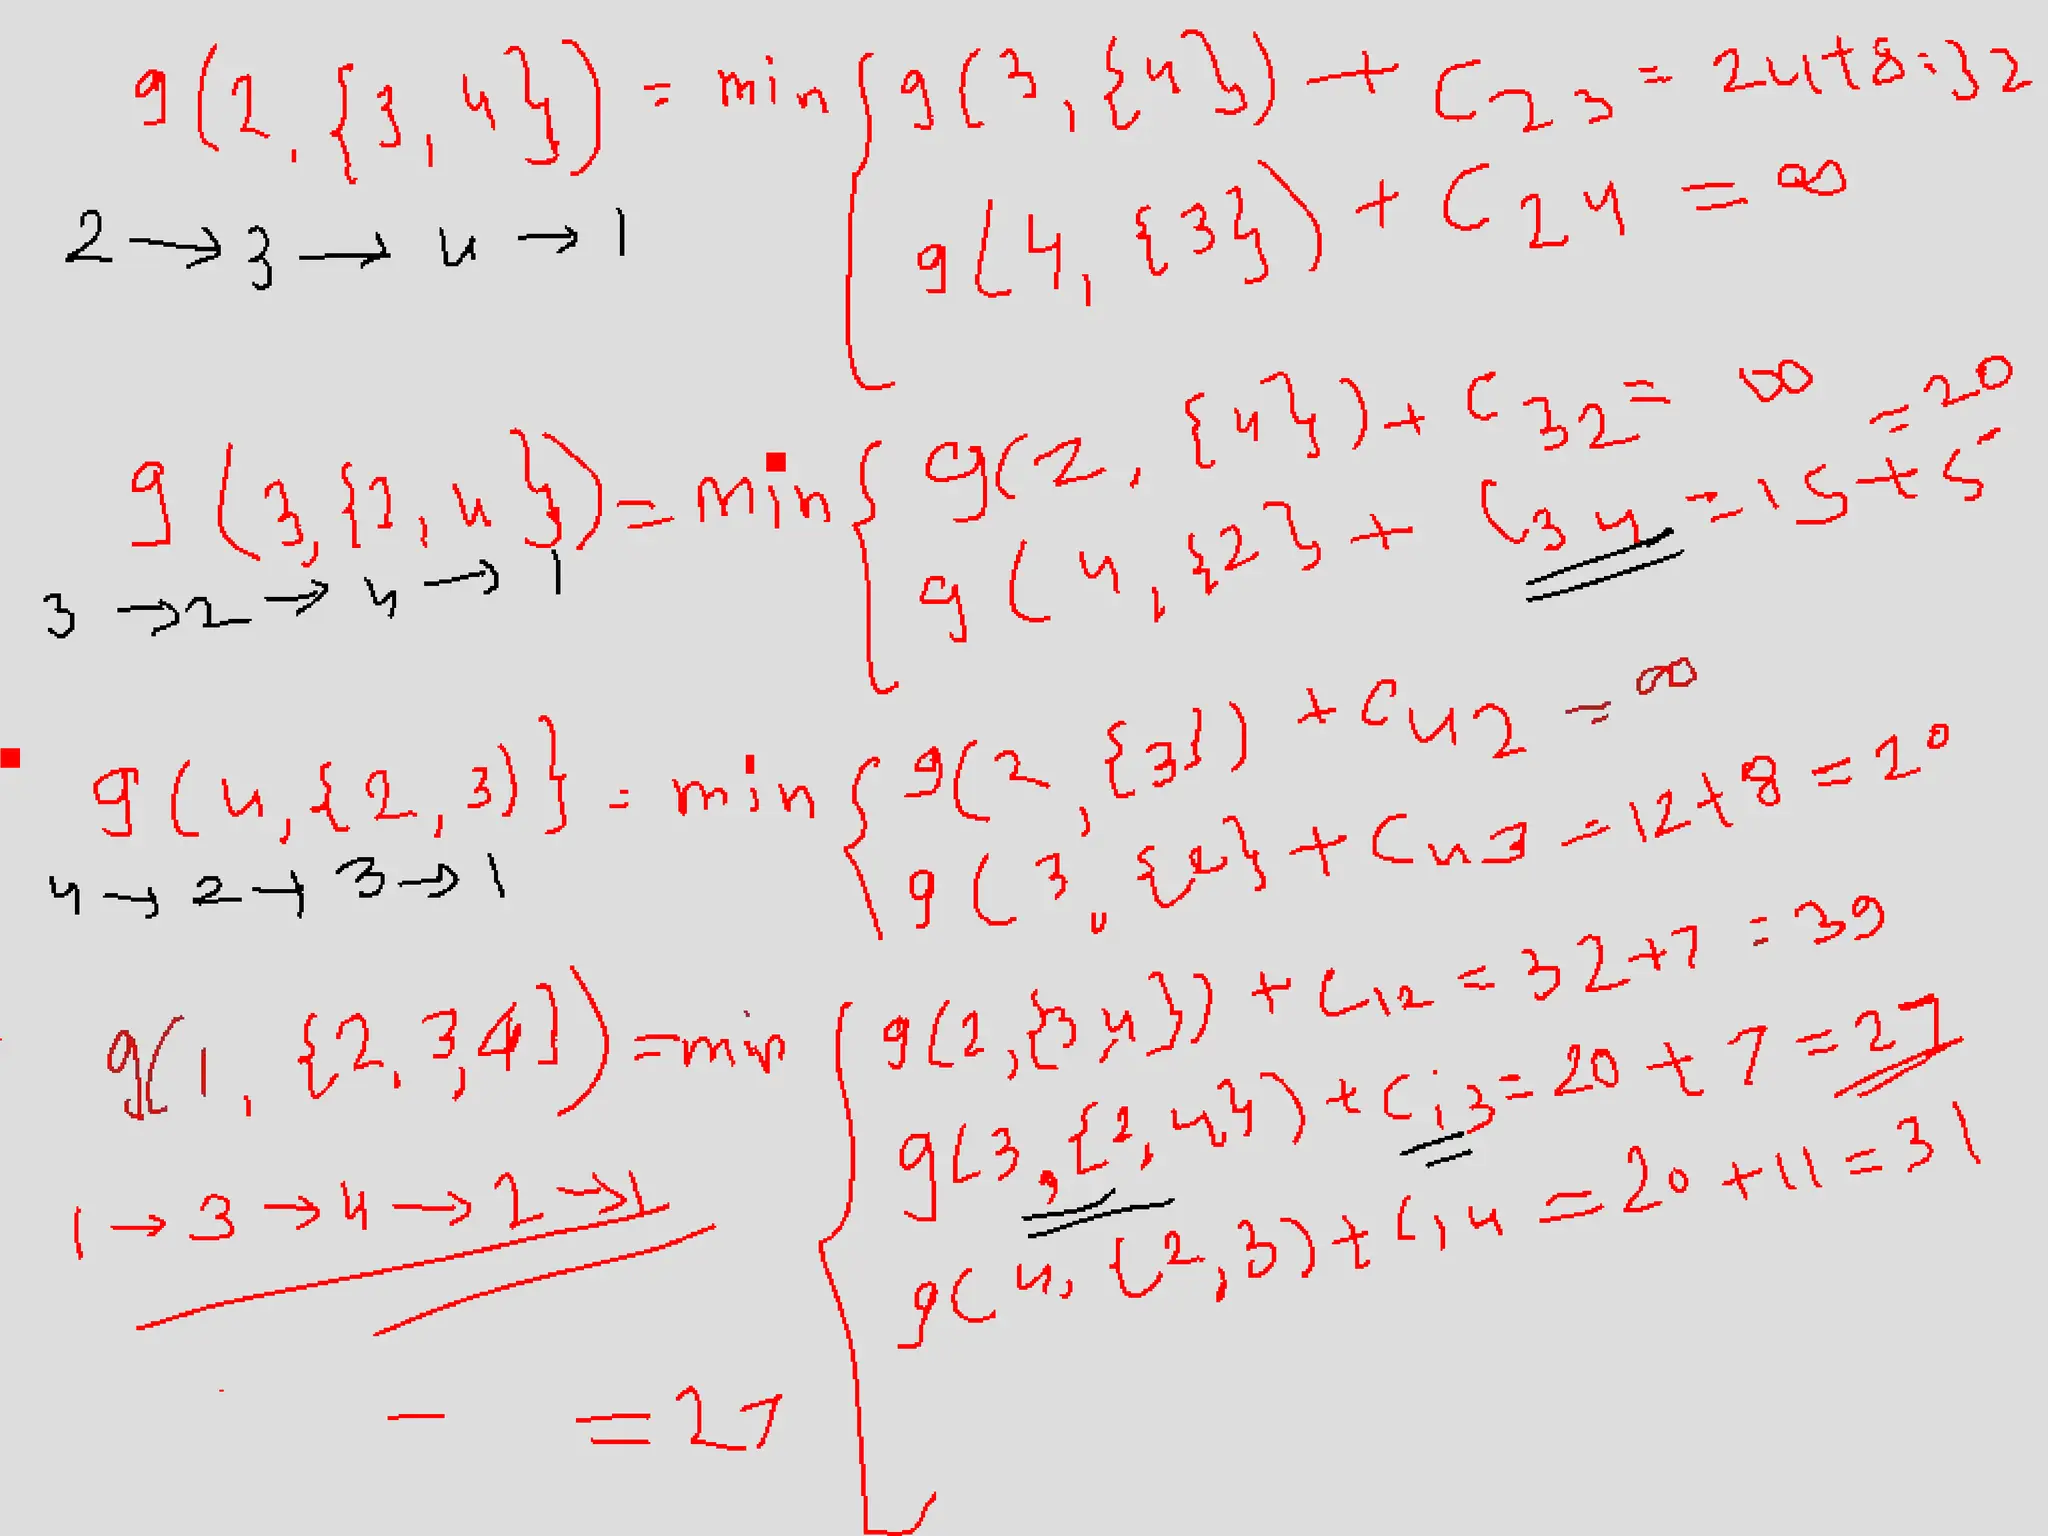 g(2,{3,4}) = min { g(3,{4}) + C23 = 24+8=32
g(4,{3}) + C24 = ∞
2 → 3 → 4 → 1
g(3,{2,4}) = min { g(2,{4}) + C32 = ∞
g(4,{2} + C34 = 15+5 = 20
3 → 2 → 4 → 1
g(4,{2,3)} = min { g(2,{3}) + C42 = ∞
g(3,{2} + C43 = 12+8 = 20
4 → 2 → 3 → 1
g(1,{2,3,4}) = min { g(2,{3,4}) + C12 = 32+7 = 39
g(3,{2,4}) + C13 = 20+7 = 27
g(4,(2,3) + C14 = 20+11 = 31
1 → 3 → 4 → 2 → 1
= 27